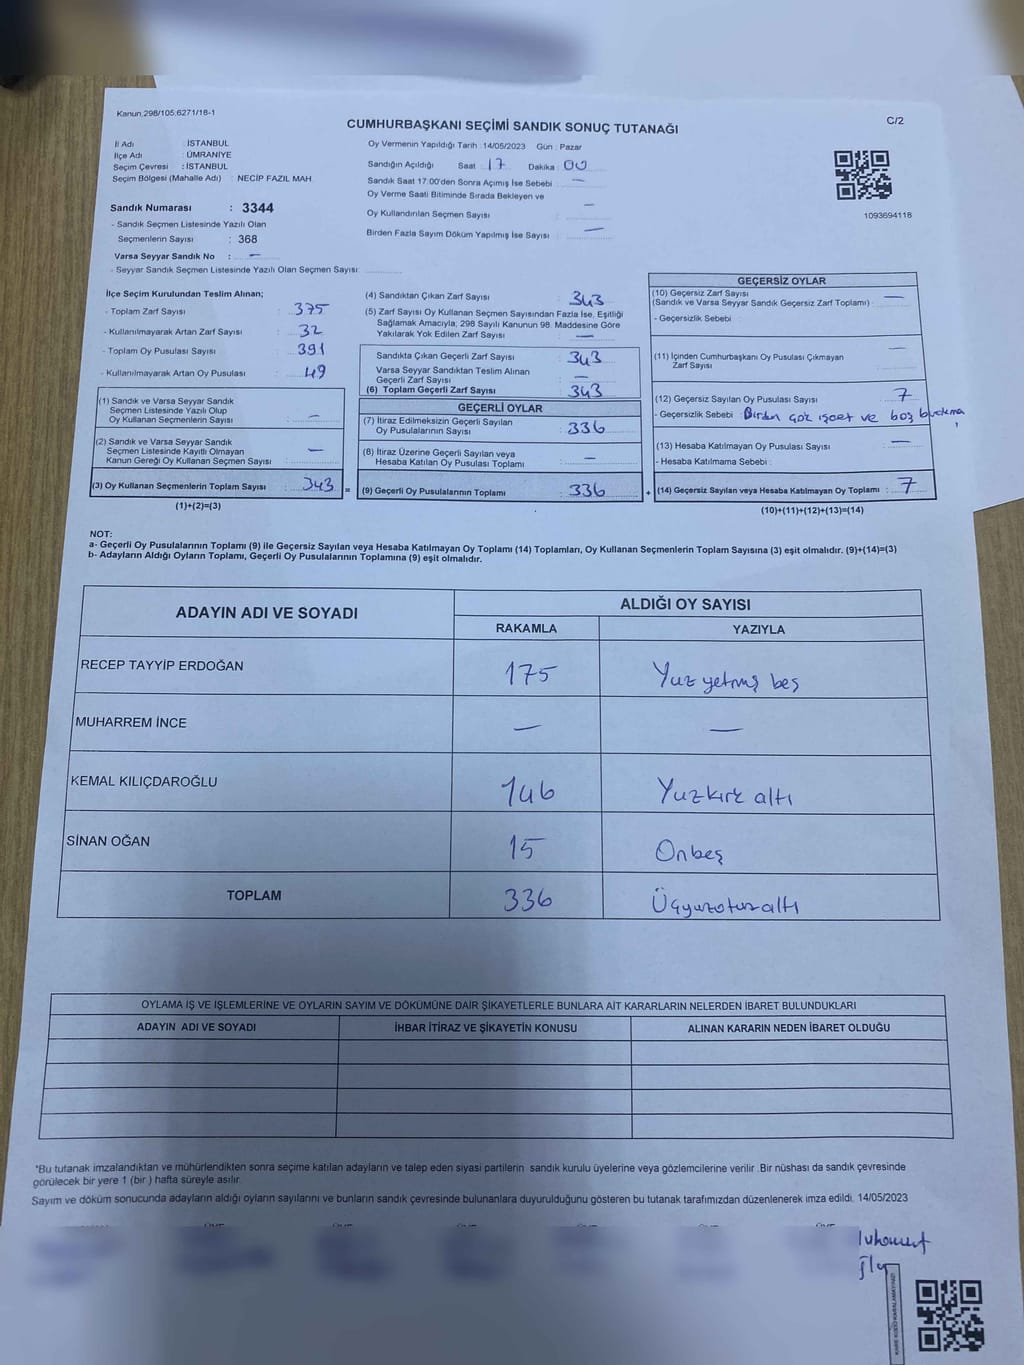 Kanun.298/105.6271/18-1
CUMHURBAŞKANI SEÇİMİ SANDIK SONUÇ TUTANAĞI
C/2
İl Adı : İSTANBUL
İlçe Adı : ÜMRANİYE
Seçim Çevresi : İSTANBUL
Seçim Bölgesi (Mahalle Adı) : NECİP FAZIL MAH.
Oy Vermenin Yapıldığı Tarih : 14/05/2023 Gün : Pazar
Sandığın Açıldığı Saat : 17 Dakika : 00
Sandık Saat 17:00'den Sonra Açımış İse Sebebi : —
Oy Verme Saati Bitiminde Sırada Bekleyen ve
Oy Kullandırılan Seçmen Sayısı : —
Birden Fazla Sayım Döküm Yapılmış İse Sayısı : —
1093694118
Sandık Numarası : 3344
- Sandık Seçmen Listesinde Yazılı Olan
Seçmenlerin Sayısı : 368
Varsa Seyyar Sandık No : —
- Seyyar Sandık Seçmen Listesinde Yazılı Olan Seçmen Sayısı:
İlçe Seçim Kurulundan Teslim Alınan;
- Toplam Zarf Sayısı : 375
- Kullanılmayarak Artan Zarf Sayısı : 32
- Toplam Oy Pusulası Sayısı : 391
- Kullanılmayarak Artan Oy Pusulası : 49
(1) Sandık ve Varsa Seyyar Sandık
Seçmen Listesinde Yazılı Olup
Oy Kullanan Seçmenlerin Sayısı : —
(2) Sandık ve Varsa Seyyar Sandık
Seçmen Listesinde Kayıtlı Olmayan
Kanun Gereği Oy Kullanan Seçmen Sayısı : —
(3) Oy Kullanan Seçmenlerin Toplam Sayısı : 343 =
(1)+(2)=(3)
(4) Sandıktan Çıkan Zarf Sayısı : 343
(5) Zarf Sayısı Oy Kullanan Seçmen Sayısından Fazla İse, Eşitliği
Sağlamak Amacıyla; 298 Sayılı Kanunun 98. Maddesine Göre
Yakılarak Yok Edilen Zarf Sayısı : —
Sandıkta Çıkan Geçerli Zarf Sayısı : 343
Varsa Seyyar Sandıktan Teslim Alınan
Geçerli Zarf Sayısı : —
(6) Toplam Geçerli Zarf Sayısı : 343
GEÇERLİ OYLAR
(7) İtiraz Edilmeksizin Geçerli Sayılan
Oy Pusulalarının Sayısı : 336
(8) İtiraz Üzerine Geçerli Sayılan veya
Hesaba Katılan Oy Pusulası Toplamı : —
(9) Geçerli Oy Pusulalarının Toplamı : 336 +
GEÇERSİZ OYLAR
(10) Geçersiz Zarf Sayısı
(Sandık ve Varsa Seyyar Sandık Geçersiz Zarf Toplamı) : —
- Geçersizlik Sebebi :
(11) İçinden Cumhurbaşkanı Oy Pusulası Çıkmayan
Zarf Sayısı : —
(12) Geçersiz Sayılan Oy Pusulası Sayısı : 7
- Geçersizlik Sebebi : Birden çok işaet ve boş bırakma
(13) Hesaba Katılmayan Oy Pusulası Sayısı : —
- Hesaba Katılmama Sebebi :
(14) Geçersiz Sayılan veya Hesaba Katılmayan Oy Toplamı : 7
(10)+(11)+(12)+(13)=(14)
NOT:
a- Geçerli Oy Pusulalarının Toplamı (9) ile Geçersiz Sayılan veya Hesaba Katılmayan Oy Toplamı (14) Toplamları, Oy Kullanan Seçmenlerin Toplam Sayısına (3) eşit olmalıdır. (9)+(14)=(3)
b- Adayların Aldığı Oyların Toplamı, Geçerli Oy Pusulalarının Toplamına (9) eşit olmalıdır.
ADAYIN ADI VE SOYADI
ALDIĞI OY SAYISI
RAKAMLA YAZIYLA
RECEP TAYYİP ERDOĞAN 175 Yuz yetmiş beş
MUHARREM İNCE — —
KEMAL KILIÇDAROĞLU 146 Yuzkırk altı
SİNAN OĞAN 15 Onbeş
TOPLAM 336 Üçyuzotuzaltı
OYLAMA İŞ VE İŞLEMLERİNE VE OYLARIN SAYIM VE DÖKÜMÜNE DAİR ŞİKAYETLERLE BUNLARA AİT KARARLARIN NELERDEN İBARET BULUNDUKLARI
ADAYIN ADI VE SOYADI İHBAR İTİRAZ VE ŞİKAYETİN KONUSU ALINAN KARARIN NEDEN İBARET OLDUĞU
*Bu tutanak imzalandıktan ve mühürlendikten sonra seçime katılan adayların ve talep eden siyasi partilerin sandık kurulu üyelerine veya gözlemcilerine verilir. Bir nüshası da sandık çevresinde
görülecek bir yere 1 (bir) hafta süreyle asılır.
Sayım ve döküm sonucunda adayların aldığı oyların sayılarını ve bunların sandık çevresinde bulunanlara duyurulduğunu gösteren bu tutanak tarafımızdan düzenlenerek imza edildi. 14/05/2023